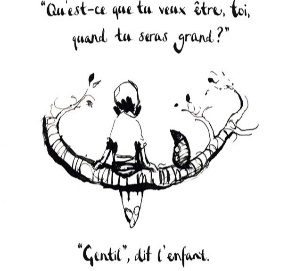 "Qu'est-ce que tu veux être, toi,
quand tu seras grand?"
"Gentil", dit l'enfant.